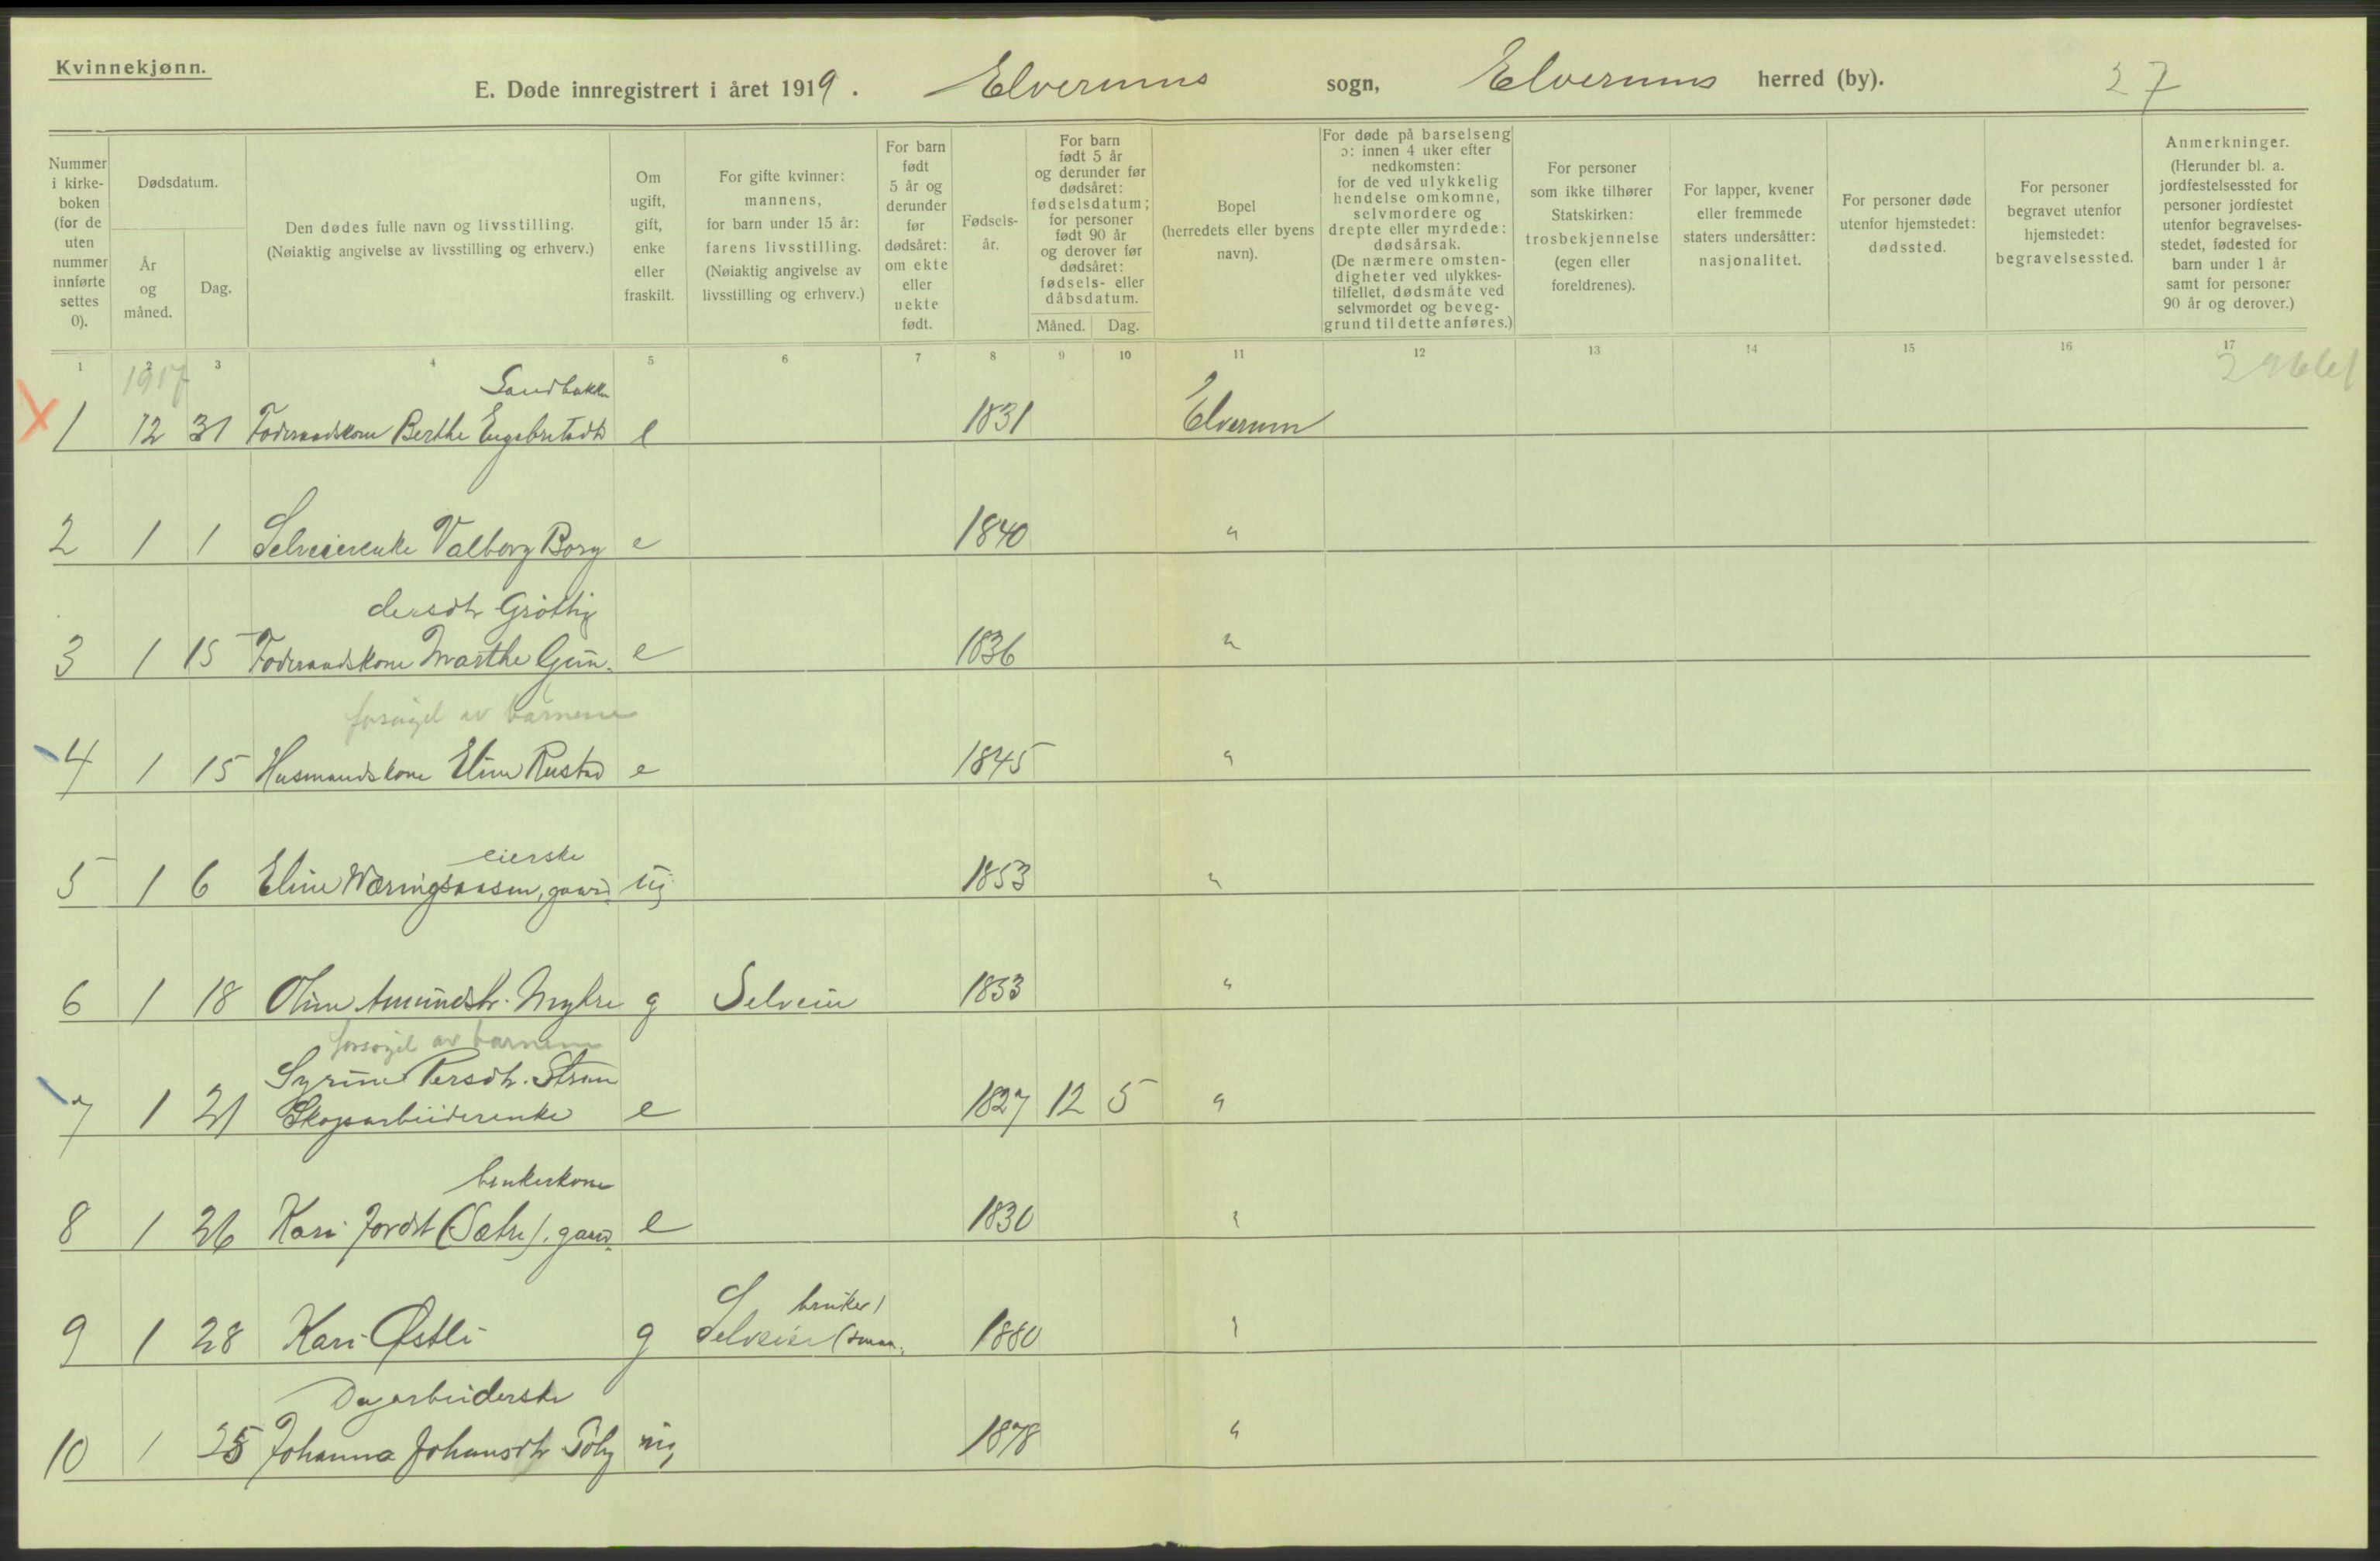 Kvinnekjønn.
E. Døde innregistrert i året 1919. Elverums sogn, Elverums herred (by). 27
Nummer i kirke-boken (for de uten nummer innførte settes 0).
Dødsdatum.
År og måned.
Dag.
Den dødes fulle navn og livsstilling.
(Nøiaktig angivelse av livsstilling og erhverv.)
Om ugift, gift, enke eller fraskilt.
For gifte kvinner: mannens, for barn under 15 år: farens livsstilling.
(Nøiaktig angivelse av livsstilling og erhverv.)
For barn født 5 år og derunder før dødsåret: om ekte eller uekte født.
Fødsels-år.
For barn født 5 år og derunder før dødsåret: fødselsdatum; for personer født 90 år og derover før dødsåret: fødsels- eller dåbsdatum.
Måned. Dag.
Bopel (herredets eller byens navn).
For døde på barselseng ɔ: innen 4 uker efter nedkomsten: for de ved ulykkelig hendelse omkomne, selvmordere og drepte eller myrdede: dødsårsak.
(De nærmere omsten-digheter ved ulykkes-tilfellet, dødsmåte ved selvmordet og beveg-grund til dette anføres.)
For personer som ikke tilhører Statskirken: trosbekjennelse (egen eller foreldrenes).
For lapper, kvener eller fremmede staters undersåtter: nasjonalitet.
For personer døde utenfor hjemstedet: dødssted.
For personer begravet utenfor hjemstedet: begravelsessted.
Anmerkninger.
(Herunder bl. a. jordfestelsessted for personer jordfestet utenfor begravelses-stedet, fødested for barn under 1 år samt for personer 90 år og derover.)
1 2 3 4 5 6 7 8 9 10 11 12 13 14 15 16 17
1917
Sandbakken
1 12 31 Foderaadskone Berthe Engebretsdtr e 1831 Elverum
2 1 1 Selveierenke Valborg Borg e 1840 "
dersdtr Grøtting
3 1 15 Foderaadskone Marthe Gun- e 1836 "
forsørget av barnene
4 1 15 Husmandskone Eline Rustad e 1845 "
eierske
5 1 6 Eline Wæringsaasen, gaard- ug 1853 "
6 1 18 Oline Amundsdtr. Myhre g Selveier 1853 "
forsørget av barnene
Syrine Persdtr. Strøm
7 1 21 Skogsarbeiderenke e 1827 12 5 "
brukerkone
8 1 26 Kari Jordet (Sætre), gaard- e 1830 "
bruker)
9 1 28 Kari Østli g Selveier (smaa- 1880 "
Dagarbeiderske
10 1 25 Johanna Johansdtr ug 1878 "